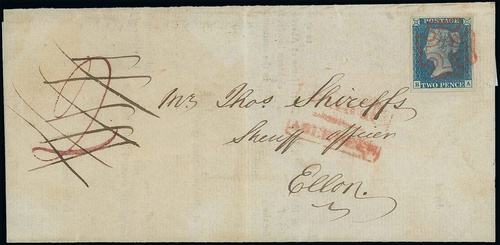 POSTAGE
TWO PENCE
Mr Thos Shireffs
Sheriff Officer
Ellon.